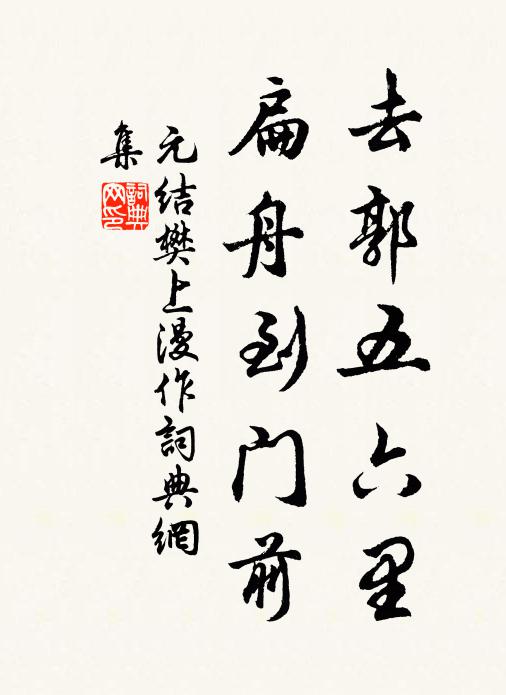 去郭五六里
扁舟到门前
元结樊上漫作詞典網
集
詞典
网印